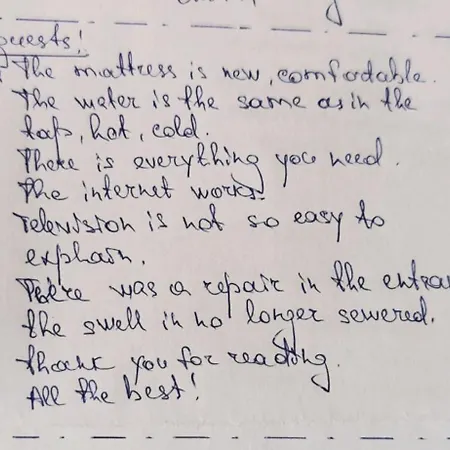 guests!
The mattress is new, comfortable.
The water is the same as in the
tap, hot, cold.
There is everything you need.
The internet works.
Television is not so easy to
explain.
There was a repair in the entran
the swell in no longer sewered.
Thank you for reading.
All the best!